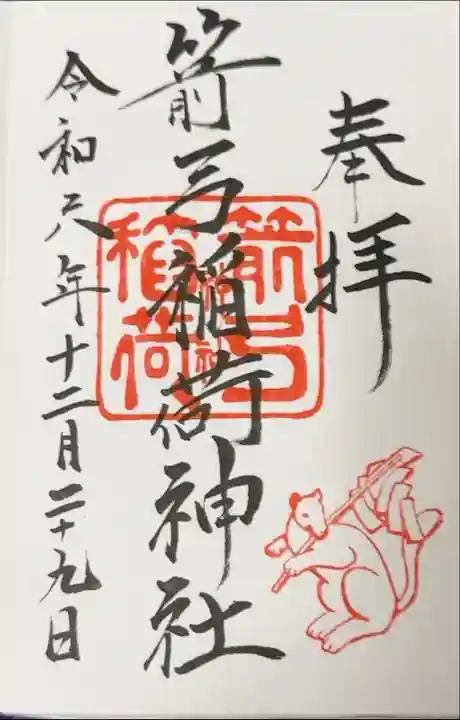 奉拝
箭弓稲荷神社
令和六年十二月二十九日
箭弓
稲荷